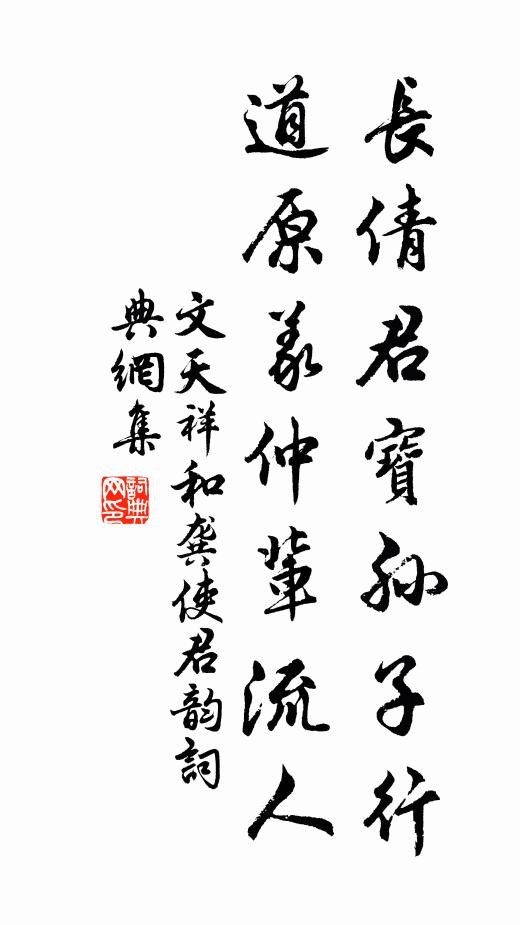 長倩君寶孫子行
道原義仲輩流人
文天祥和龔使君韵詞
典網集
詞典網印